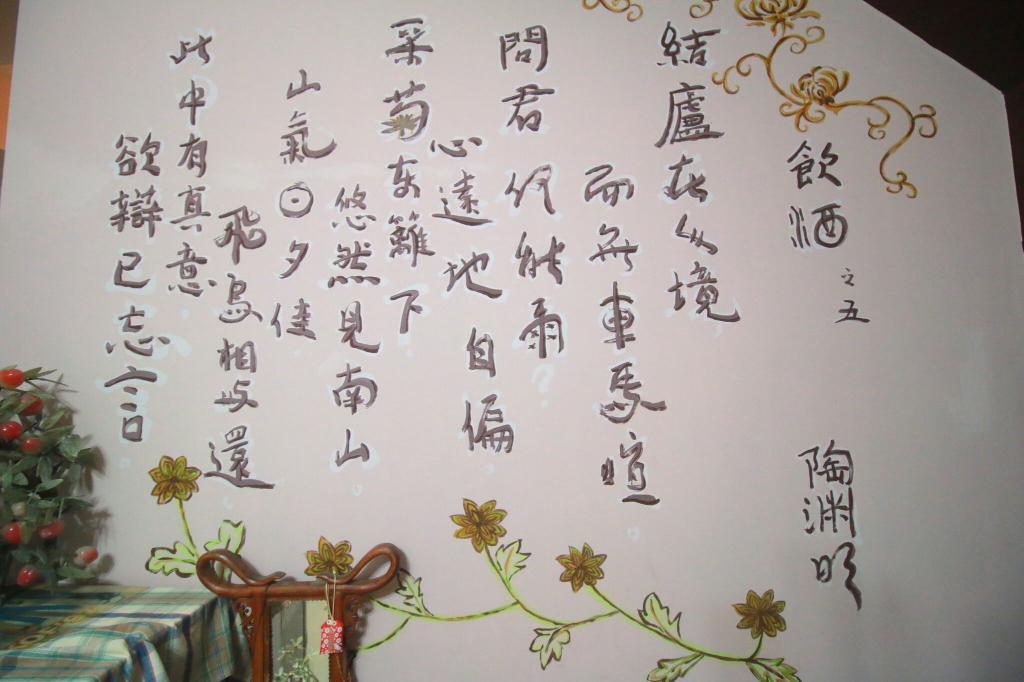 飲酒 之五
陶渊明
結廬在人境
而無車馬喧
問君何能爾?
心遠地自偏
采菊東籬下
悠然見南山
山氣日夕佳
飛鳥相与還
此中有真意
欲辯已忘言